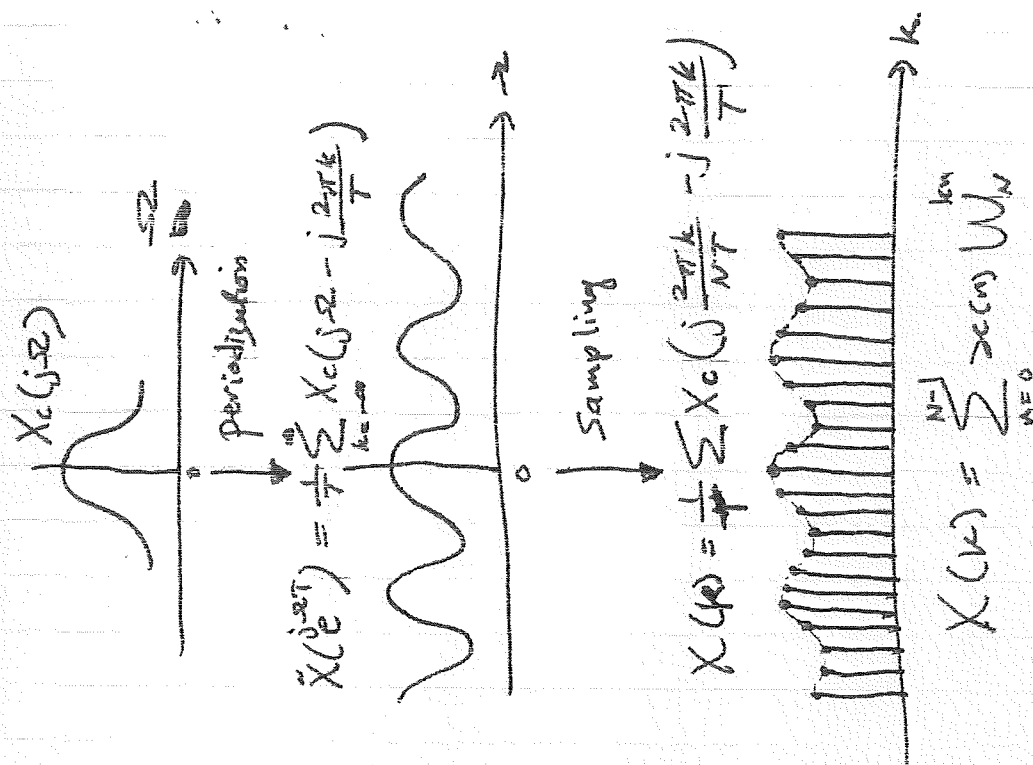 X_c(jΩ)
Ω
0
periodization
X̃(e^{jΩT}) = \frac{1}{T} \sum_{k=-∞}^{∞} X_c(jΩ - j\frac{2πk}{T})
Ω
0
Sampling
X(k) = \frac{1}{T} \sum X_c(j\frac{2πk}{NT} - j\frac{2πk}{T})
k
X(k) = \sum_{n=0}^{N-1} x(n) W_N^{kn}